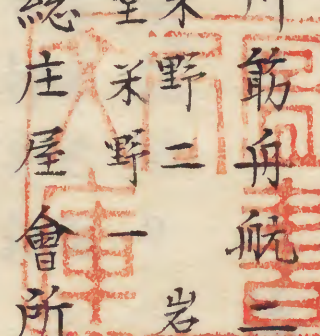 川筋舟航二
米野二 岩
米野一
総庄屋會所